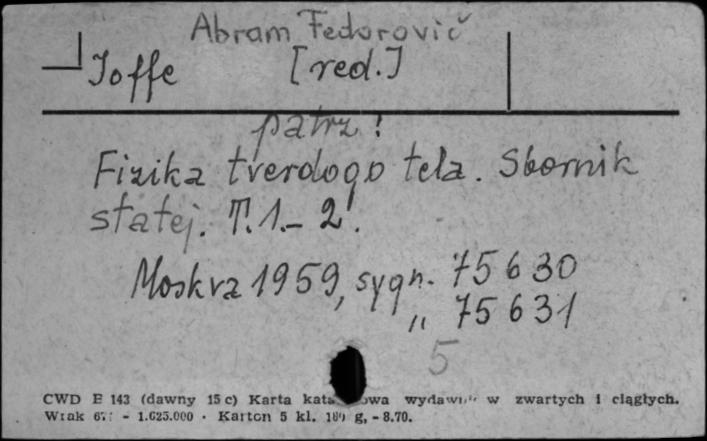 Abram Fedorovič
Joffe [red.]
patrz!
Fizika tverdogo tela. Sbornik
statej. T.1.-2.
Moskva 1959, sygn. 75630
" 75631
5
CWD E 143 (dawny 15 c) Karta wydawn. w zwartych i ciągłych.
- 1.625.000 · Karton 5 kl. g, - 8.70.